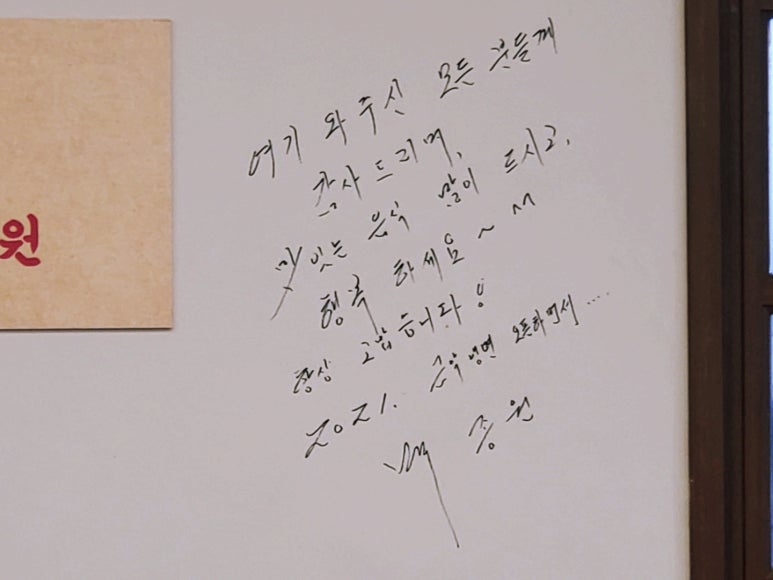 원
여기 와 주신 모든 분들께
감사 드리며,
맛있는 음식 많이 드시고,
행복 하세요~ ^^
항상 고맙습니다!
2021. 금악냉면 오픈하면서....
백종원